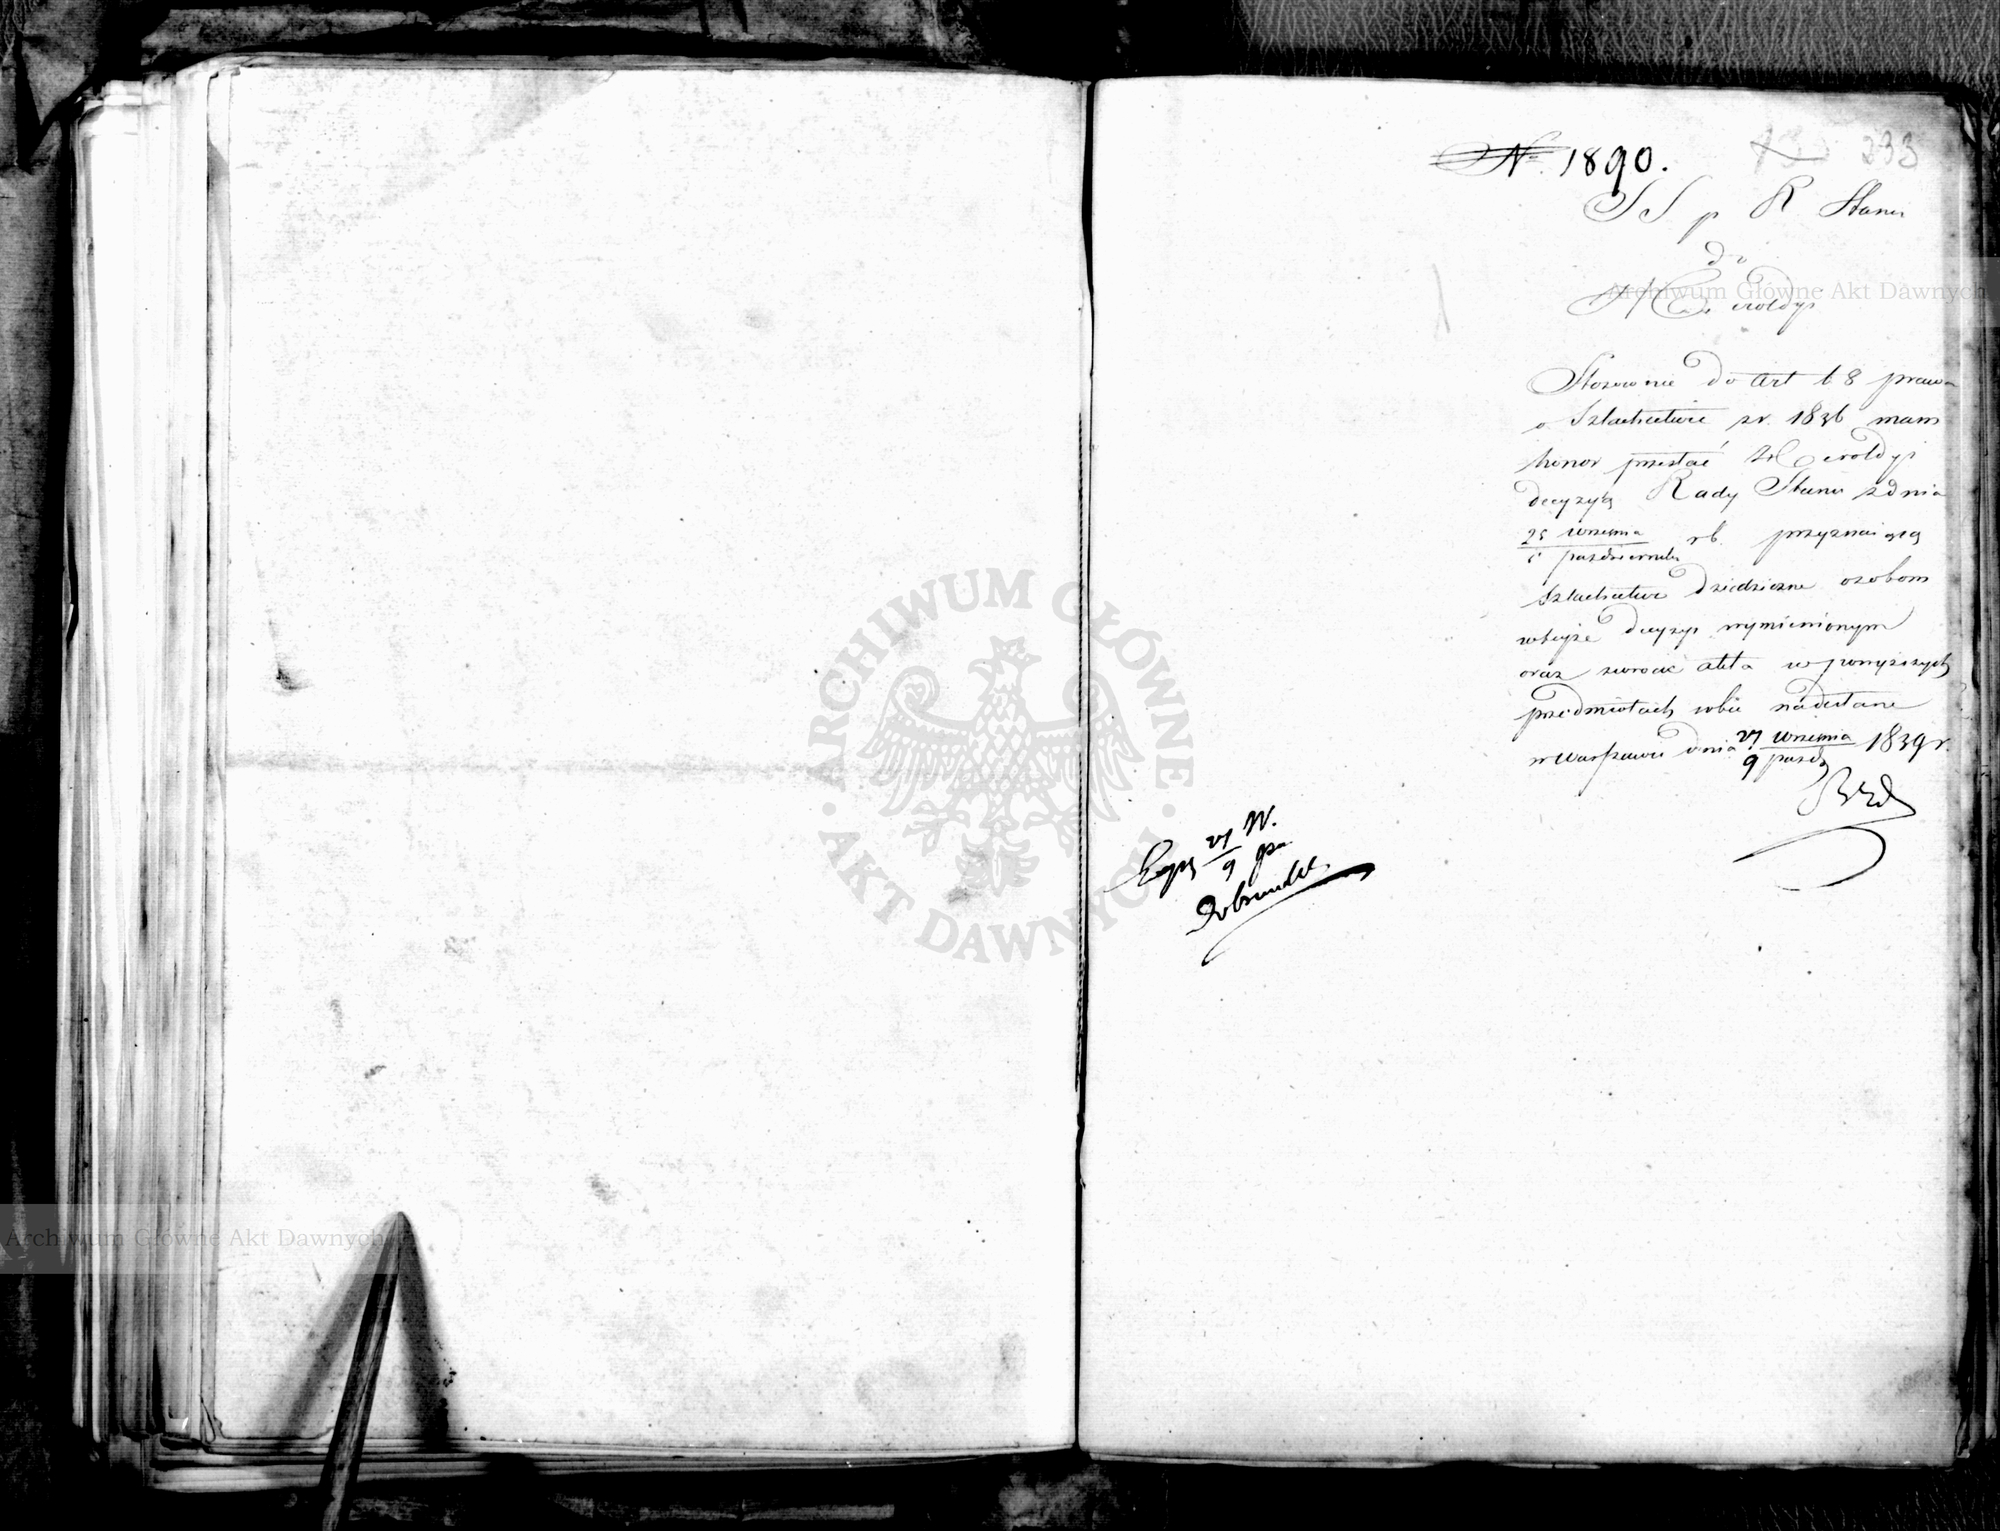 № 1890.
233
SS p R Stanu
do
Heroldyi
Stosownie do Art 68 prawa
o Szlachectwie zr. 1836 mam
honor przesłać Heroldyi
decyzyą Rady Stanu zdnia
25 Września rb. przyznaiącą
Października
Szlachectwo dziedziczne osobom
wteyże decyzyi wymienionym
oraz zwrócić akta w powyższych
przedmiotach sobie nadesłane
w Warszawie dnia 27 Września 1839 r.
9 Paźd
Exp 27 W.
9 paz
ARCHIWUM GŁÓWNE
AKT DAWNYCH
Archiwum Główne Akt Dawnych
Archiwum Główne Akt Dawnych